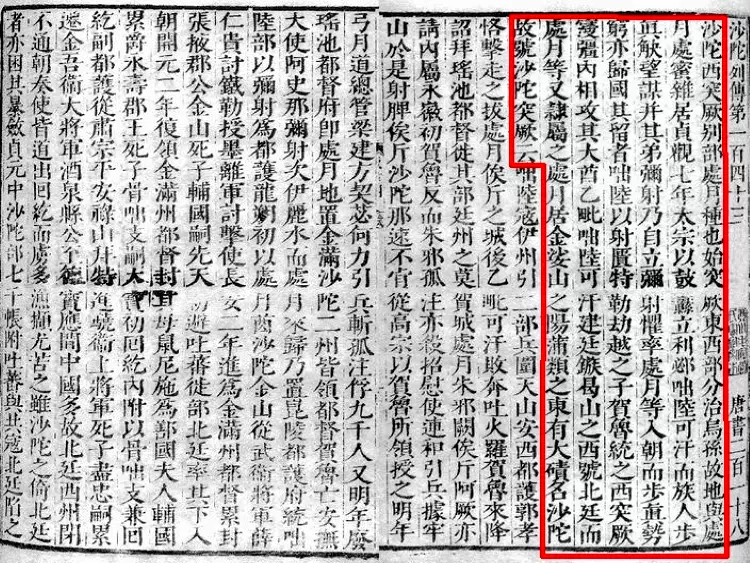 沙陀列傳第一百四十三　唐書二百一十八
沙陀西突厥別部處月種也始突厥東西部分治烏孫故地與處
月處蜜雜居貞觀七年太宗以鼓纛立利邲咄陸可汗而族人步
眞觖望謀并其弟彌射乃自立彌射懼率處月等入朝而步眞勢
窮亦歸國其留者咄陸以射匱特勒劫越之子賀魯統之西突厥
寖彊內相攻其大酋乙毗咄陸可汗建廷鏃曷山之西號北廷而
處月等又隸屬之處月居金娑山之陽蒲類之東有大磧名沙陀
故號沙陀突厥云咄陸寇伊州引二部兵圍天山安西都護郭孝
恪擊走之拔處月俟斤之城後乙毗可汗敗奔吐火羅賀魯來降
詔拜瑤池都督徙其部廷州之莫賀城處月朱邪闕俟斤阿厥亦
請內屬永徽初賀魯反而朱邪孤注亦殺招慰使連和引兵據牢
山於是射脾俟斤沙陀那速不肎從高宗以賀魯所領授之明年
弓月道總管梁建方契苾何力引兵斬孤注俘九千人又明年廢
瑤池都督府卽處月地置金滿沙陀二州皆領都督賀魯亡安撫
大使阿史那彌射次伊麗水而處月來歸乃置崑陵都護府統咄
陸部以彌射爲都護龍朔初以處月酋沙陀金山從武衞將軍薛
仁貴討鐵勒授墨離軍討擊使長安二年進爲金滿州都督累封
張掖郡公金山死子輔國嗣先天初避吐蕃徙部北廷率其下入
朝開元二年復領金滿州都督封其母鼠尼施爲鄯國夫人輔國
累爵永壽郡王死子骨咄支嗣天寶初回紇內附以骨咄支兼回
紇副都護從肅宗平安祿山拜特進驍衞上將軍死子盡忠嗣累
遷金吾衞大將軍酒泉縣公至德寶應間中國多故北廷西州閉
不通朝奏使皆道出回紇而虜多漁擷尤苦之雖沙陀之倚北廷
者亦困其暴斂貞元中沙陀部七千帳附吐蕃與共寇北廷陷之